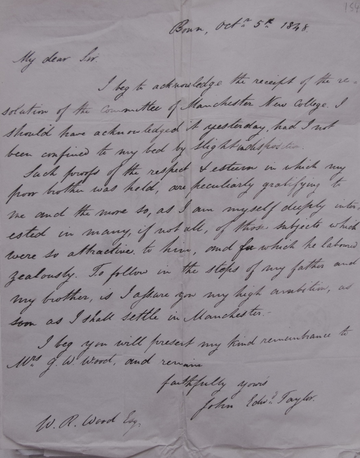 Bonn, Octr. 5th. 1848
My dear Sir
I beg to acknowledge the receipt of the re-
solution of the committee of Manchester New College. I
should have acknowledged it yesterday, had I not
been confined to my bed by slight indisposition.
Such proofs of the respect & esteem in which my
poor brother was held, are peculiarly gratifying to
me and the more so, as I am myself deeply inter-
ested in many, if not all, of those subjects which
were so attractive to him, and for which he laboured
zealously. To follow in the steps of my father and
my brother, is I assure you my high ambition, as
soon as I shall settle in Manchester.
I beg you will present my kind remembrance to
Mrs. G. W. Wood, and remain
faithfully yours
John Edwd. Taylor.
W. R. Wood Esq.